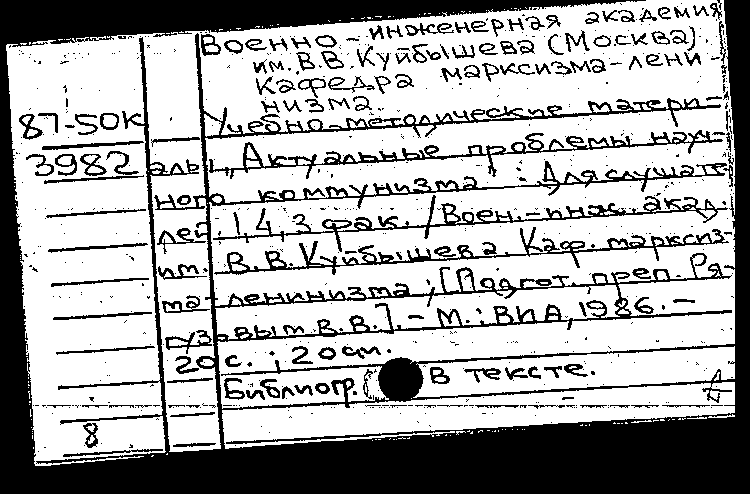 Военно-инженерная академия
им. В.В. Куйбышева (Москва).
Кафедра марксизма-лени-
низма.
87-50к Учебно-методические матери-
3982 алы „Актуальные проблемы науч-
ного коммунизма": Для слушате-
лей 1, 4, 3 фак. / Воен.-инж. акад.
им. В.В. Куйбышева. Каф. марксиз-
ма-ленинизма; [Подгот. преп. Ря-
гузовым В.В.]. - М.: ВИА, 1986. -
20 с.; 20 см.
Библиогр. в тексте.
8